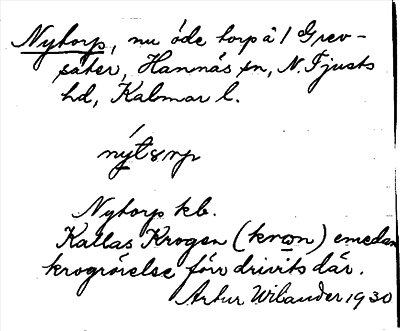 Nytorp, nu öde torp å 1 Grev-
säter, Hannäs sn, N. Tjusts
hd, Kalmar l.
Nytorp kb.
Kallas Krogen (krωn) emedan
krogrörelse förr drivits där.
Artur Wilander 1930